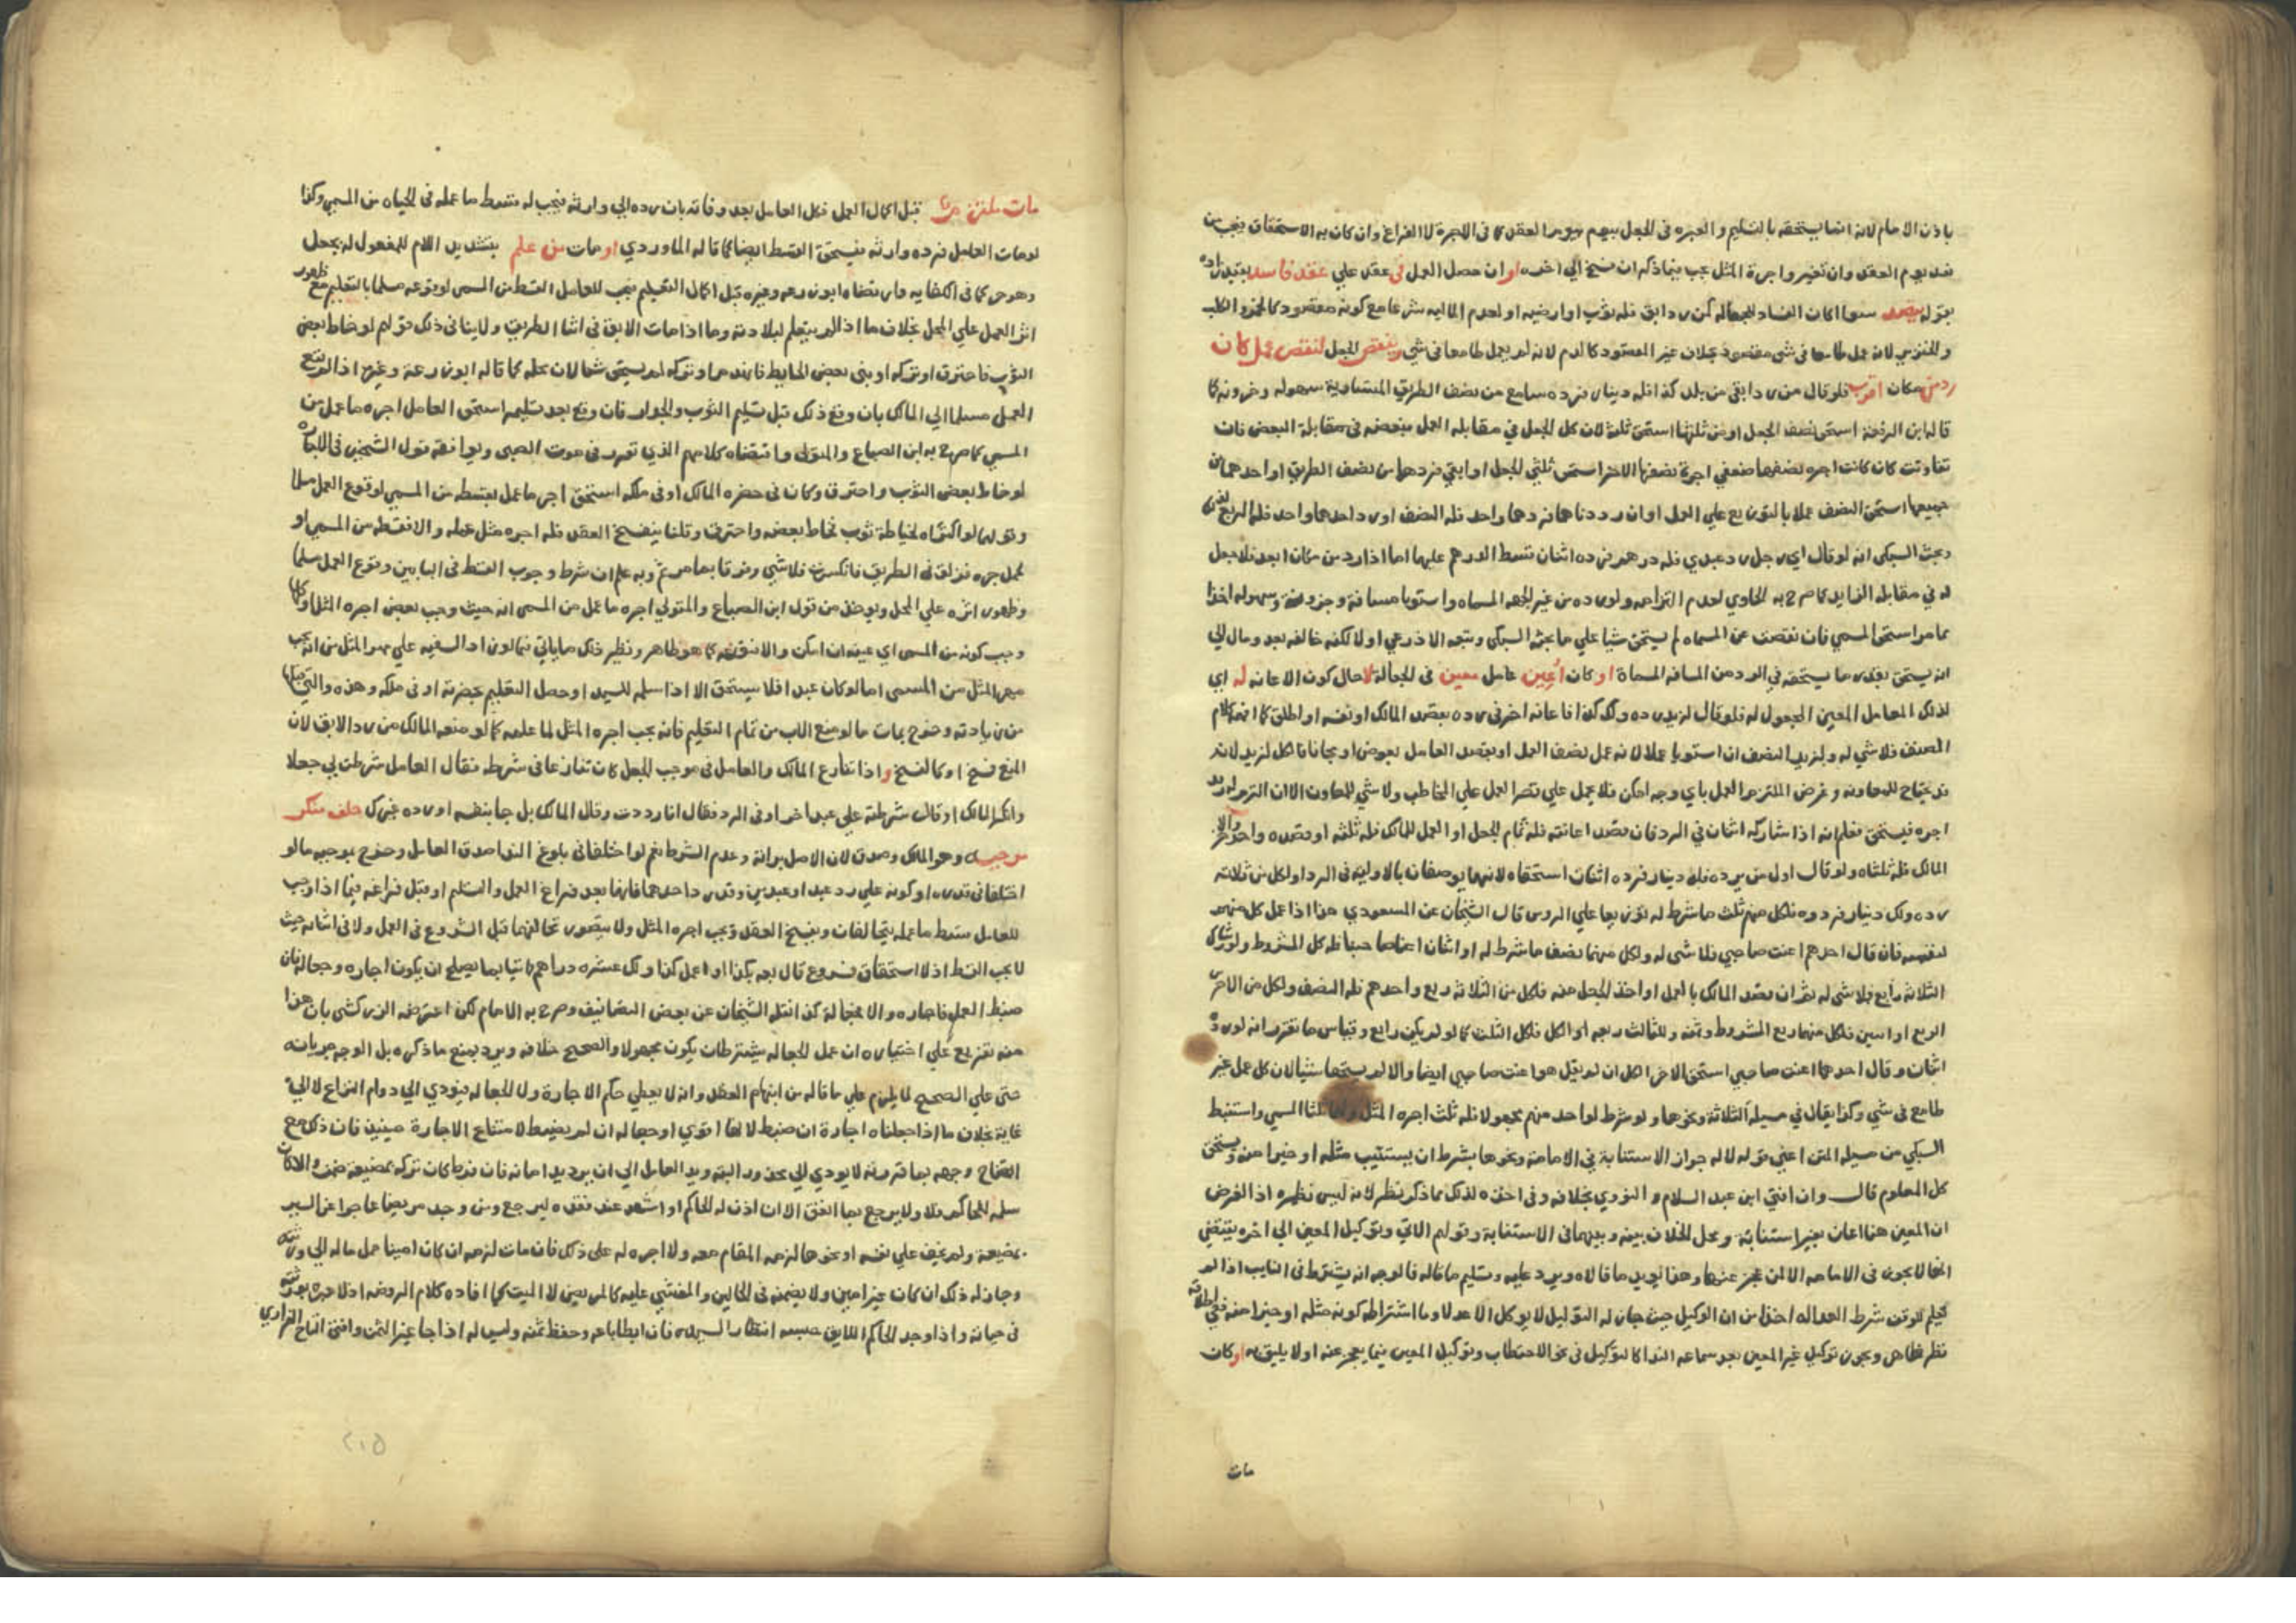 باذن الامام لانه انما يستحقه بالتسليم والعبره فى الجعل بيوم العقد كما فى الاجرة لا الفراغ وان كان به الاستحقاق فيجب من
نقد يوم العقد وان تغير واجرة المثل يجب فيما ذكر ان فسخ الى اخره او ان حصل العمل فى عقد علي عقد فاسد بقيد زاده
بقوله بقصد سوا اكان الفساد للجهاله كمن رد ابق فله ثوب او ارضيه او لعدم الماليه شرعا مع كونه مقصودا كالخمر والكلب
والخنزير لانه عمل طامعا فى شى مقصود بخلاف غير المقصود كالدم لانه لم يعمل طامعا فى شي وينقص الجعل لنقص عمل كان
رد من مكان اقرب فلو قال من رد ابقى من بلد كذا فله دينار فرده سامع من نصف الطريق المتساوية سهوله وحزونه كما
قاله ابن الرفعة استحق نصف الجعل او من ثلثها استحق ثلثه لان كل الجعل في مقابله العمل فبعضه فى مقابلة البعض فان
تفاوتت كان كانت اجره نصفها ضعفي اجرة نصفها الاخر استحق ثلثي الجعل او ابقي فردهما من نصف الطريق او احدهما من
جميعها استحق النصف عملا بالتوزيع علي العمل او ان رددتماهما فردهما واحد فله النصف او رد احدهما واحد فله الربع
وبحث السبكى انه لو قال اي رجل رد عبدي فله درهم فرده اثنان قسط الدرهم عليهما اما اذا رد من مكان ابعد فلا جعل
له في مقابله الزايد كما صرح به الحاوي لعدم التزامه ولو رده من غير الجهه المسماه واستويا مسافة وحزونة وسهوله
كما مر استحق المسمى فان نقصت عن المسماه لم يستحق شيا علي ما بحثه السبكى وتبعه الاذرعي اولا لكنه خالفه بعد ومال الى
انه يستحق بقدر ما يستحقه في الرد من المسافه المسماة او كان اُعِين عامل معين فى الجعالة لا حال كون الاعانه له اي
لذلك العامل المعين المجعول له فلو قال لزيد رده ولك كذا فاعانه اخر فى رده بقصد المالك او نفسه او اطلق كما افهمه كلام
المصنف فلا شي له ولزيد النصف ان استويا عملا لانه عمل نصف العمل او بقصد العامل بعوض او مجانا فالكل لزيد لانه
قد يحتاج للمعاونه وغرض الملتزم العمل باي وجه امكن فلا يحمل علي قصر العمل علي المخاطب ولا شي للمعاون الا ان التزم له زيد
اجره فيستحق فعلم انه اذا شاركه اثنان في الرد فان قصدا اعانته فله تمام الجعل او العمل للمالك فله ثلثه او قصده واحد والاخر
المالك فله ثلثاه ولو قال اول من يرده فله دينار فرده اثنان استحقاه لانهما يوصفان بالاوليه فى الرد او لكل من ثلاثه
رده ولك دينار فردوه فلكل منهم ثلث ما شرط له توزيعا علي الروس قال الشيخان عن المسعودي هذا اذا عمل كل منهم
لنفسه فان قال احدهم اعنت صاحبي فلا شى له ولكل منهما نصف ما شرط له او اثنان اعنا صاحبنا فله كل المشروط ولو شاركه
الثلاثه رابع فلا شى له ثم ان قصد المالك بالعمل او اخذ الجعل منه فلكل من الثلاثه ربع او احدهم فله النصف ولكل من الاخرين
الربع او اثنين فلكل منهما ربع المشروط وثمنه وللثالث ربعه او الكل فلكل الثلث كما لو لم يكن رابع وقياس ما تقرر انه لو رده
اثنان وقال احدهما اعنت صاحبي استحق الاخر الكل ان لم يقل هو اعنت صاحبي ايضا والا لم يستحقا شيا لان كل عمل غير
طامع فى شي وكذا يقال في مسيلة الثلاثة ونحوها ولو شرط لواحد منهم مجهولا فله ثلث اجره المثل ثلثا المسمي واستنبط
السبكي من مسيله المتن اعنى قوله لا له جواز الاستنابة في الامامة ونحوها بشرط ان يستنيب مثله او خيرا منه ويستحق
كل المعلوم قال وان افتي ابن عبد السلام والنووي بخلافه وفى اخذه لذلك مما ذكر نظر لانه ليس نظيره اذ الفرض
ان المعين هنا اعان بغير استنابة ومحل الخلاف بينه وبينهما في الاستنابة وقولهم الاتي وتوكيل المعين الى اخره يقتضي
انها لا تجوز فى الامامه الا لمن عجز عنها وهذا يويد ما قالاه ويرد عليه وبتسليم ما قاله فالوجه انه يشترط فى النايب اذا لم
شرط العداله اخذا من ان الوكيل حيث جاز له التوكيل لا يوكل الا عدلا وما اشتراطه كونه مثله او خيرا منه ففي اطلاقه
نظر ظاهر ويجوز توكيل غير المعين بعد سماعه الندا كالتوكيل فى نحو الاحتطاب وتوكيل المعين فيما يعجز عنه او لا يليق به او كان
مات
مات ملتزم قبل اكمال العمل فكل العامل بعد وفاته بان رده الى وارثه فيجب له قسط ما عمله فى الحياه من المسمى وكذا
لو مات العامل فرده وارثه فيستحق القسط ايضا كما قاله الماوردي او مات من علم بتشديد اللام للمفعول له بجعل
وهو حر كما فى الكفايه وارتضاه ابو زرعه وغيره قبل اكمال التعليم فيجب للعامل القسط من المسمى لوقوعه مسلما بالتعليم مع ظهور
اثر العمل علي المحل بخلاف ما اذا لم يتعلم لبلادته وما اذا مات الابق فى اثنا الطريق ولا ينافى ذلك قولهم لو خاط بعض
الثوب فاحترق او تركه او بنى بعض الحايط فانهدم او تركه لم يستحق شيا لان محله كما قاله ابو زرعة وغيره اذا لم يقع
العمل مسلما الي المالك بان وقع ذلك قبل تسليم الثوب والجدار فان وقع بعد تسليمه استحق العامل اجره ما عمل من
المسمي كما صرح به ابن الصباغ والمتولي واقتضاه كلامهم الذي تقرر فى موت الصبى ويوافقه قول الشيخين فى الاجاره
لو خاط بعض الثوب واحترق وكان فى حضره المالك او فى ملكه استحق اجر ما عمل بقسطه من المسمي لوقوع العمل مسلما
وقولهما لو اكتراه لخياطة ثوب فخاط بعضه واحترق وقلنا ينفسخ العقد فله اجره مثل عمله والا فقسطه من المسمي او
لحمل جره فزلق فى الطريق فانكسرت فلا شي وفرقا بما مر ثم وبه علم ان شرط وجوب القسط فى البابين وقوع العمل مسلما
وظهور اثره علي المحل ويوخذ من قول ابن الصباغ والمتولي اجره ما عمل من المسمى انه حيث وجب بعض اجره المثل او كلها
وجب كونه من المسمى اي عينه ان امكن والا كما هو ظاهر ونظير ذلك ما ياتي فيما لو زاد السفيه علي مهر المثل من انه يجب
مهر المثل من المسمى اما لو كان عبدا فلا يستحق الا اذا سلمه للسيد او حصل التعليم بحضرته او فى ملكه وهذه والتي قبلها
من زيادته وخرج بمات ما لو منع الاب من تمام التعليم فانه يجب اجره المثل لما علمه كما لو منعه المالك من رد الابق لان
المنع فسخ او كالفسخ واذا تنازع المالك والعامل فى موجب الجعل كان تنازعا فى شرطه فقال العامل شرطت لي جعلا
وانكر المالك او قال شرطته علي عبد اخر او فى الرد فقال انا رددت وقال المالك بل جا بنفسه او رده غيرك حلف منكر
موجبه وهو المالك وصدق لان الاصل براته وعدم الشرط نعم لو اختلفا في بلوغ الندا صدق العامل وخرج بموجبه ما لو
اختلفا فى قدره او كونه علي رد عبد او عبدين وقد رد احدهما فانهما بعد فراغ العمل والتسليم او قبل فراغه فيما اذا وجب
للعامل بقسط ما عمله يتحالفان وينفسخ العقد وتجب اجره المثل ولا يتصور تحالفهما قبل الشروع فى العمل ولا فى اثنائه حيث
لا يجب القسط اذ لا استحقاق فروع قال بعه بكذا او اعمل كذا ولك عشره دراهم فاتيا بما يصلح ان يكون اجاره وجعاله فان
ضبط العمل فاجاره والا فجعالة كذا نقله الشيخان عن بعض التصانيف وصرح به الامام لكن اعترضه الزركشى بان هذا
منه تفريع علي اختياره ان عمل الجعاله يشترط ان يكون مجهولا والصحيح خلافه ويرد بمنع ما ذكره بل الوجه جريانه
حتى علي الصحيح لما يلزم علي ما قاله من ابهام العقد وانه لا يعطي حكم الاجارة ولا الجعاله فيودي الى دوام النزاع لا الى
غاية بخلاف ما اذا جعلناه اجارة ان ضبط لانها اقوي او جعاله ان لم يضبط لامتناع الاجارة حينئذ فان ذكر مع
اتضاح وجهه بما قررته لا يودي الي محذور البته ويد العامل الي ان يرد يد امانه فان فرط كان تركه بمضيعه ضمن والا كان
سلمه للحاكم فلا ولا يرجع بما انفق الا ان اذن له الحاكم او اشهد عند فقده ليرجع ومن وجد مريضا عاجزا عن السير
بمضيعة ولم يخف علي نفسه او نحوها لزمه المقام معه ولا اجره له على ذلك فان مات لزمه ان كان امينا حمل ماله الى ورثته
وجاز له ذلك ان كان غير امين ولا يضمنه فى الحالين والمغشي عليه كالمريض لا الميت كما افاده كلام الروضه
فى حياته واذا وجد الحاكم الابق حبسه انتظارا لسيده فان ابطا باعه وحفظ ثمنه وليس له اذا جا غير الثمن وافتى التاج الفزاري
٢١٥